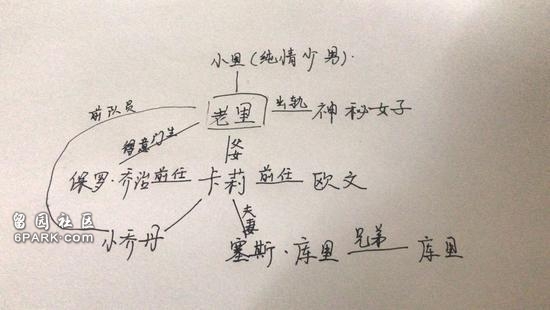 小里(纯情少男).
前队员
老里 出轨 神秘女子
得意门生
父女
保罗·乔治 前任 卡莉 前任 欧文
夫妻
小乔丹
塞斯·库里 兄弟 库里
留园社区
6PARK.com